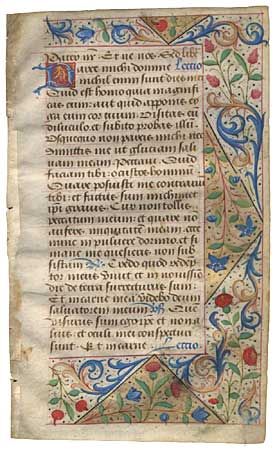 Pater nr. Et ne nos. Sed libe
Parce michi domine lectio
nichil enim sunt dies mei
Quid est homo quia magnifi
cas eum aut quid apponis er
ga eum cor tuum Visitas eum
diluculo et subito probas illu
Usquequo non parcis michi nec
dimittis me ut gluciam saliua
meam Peccaui Quid
faciam tibi o custos hominum
Quare posuisti me contrariu
tibi et factus sum michimet
ipsi grauis Cur non tollis
peccatum meum et quare no
aufers iniquitate meam ecce
nunc in puluere dormio et si
mane me quesieris non sub
sistam Credo quod redep
tor meus viuit et in nouissio
die de terra surrecturus sum
Et in carne mea videbo deum
saluatorem meum Que
visurus sum ego ipse et non
alius et oculi mei conspecturi
sunt Et in carne Lectio